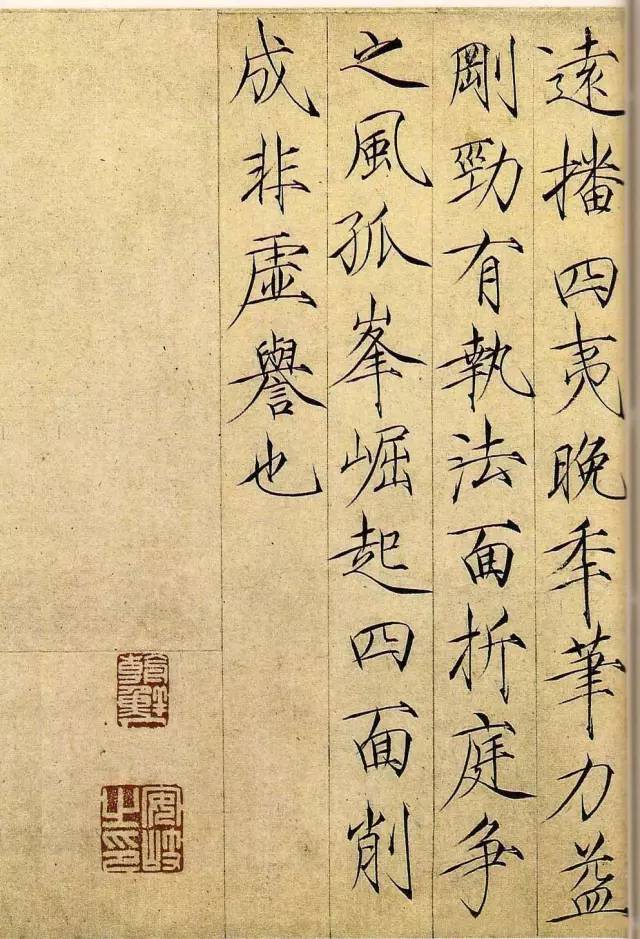 遠播四夷晚季筆力益
剛勁有執法面折庭爭
之風孤峯崛起四面削
成非虛譽也
朝鮮人
安岐之印